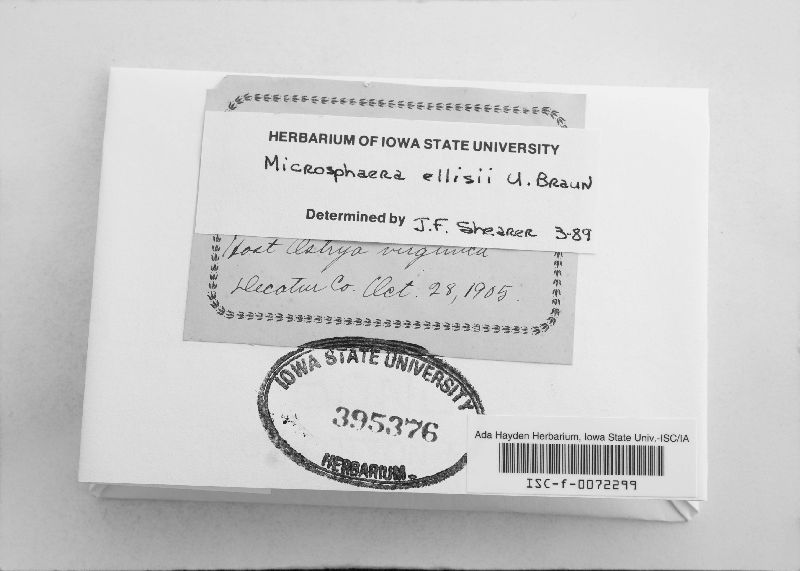 HERBARIUM OF IOWA STATE UNIVERSITY
Microsphaera ellisii U. Braun
Determined by J.F. Shearer 3-89
Host Ostrya virginica
Decatur Co. Oct. 28, 1905.
IOWA STATE UNIVERSITY
395376
HERBARIUM
Ada Hayden Herbarium, Iowa State Univ.-ISC/IA
ISC-f-0072299